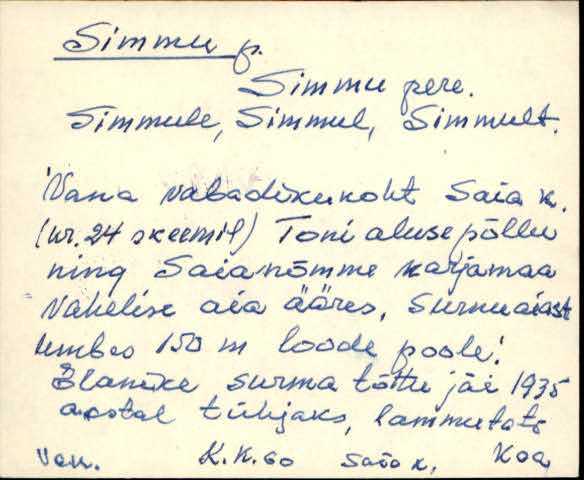 Simmu p.
Simmu pere.
Simmule, Simmul, Simmult.
Vana vabadikukoht Saia k.
(nr. 24 skeemil) Toni alusepõllu
ning Saianõmme karjamaa
vahelise aia ääres, surnuaiast
umbes 150 m loode poole.
Elanike surma tõttu jäi 1935
aastal tühjaks, lammutati
K.K. 60